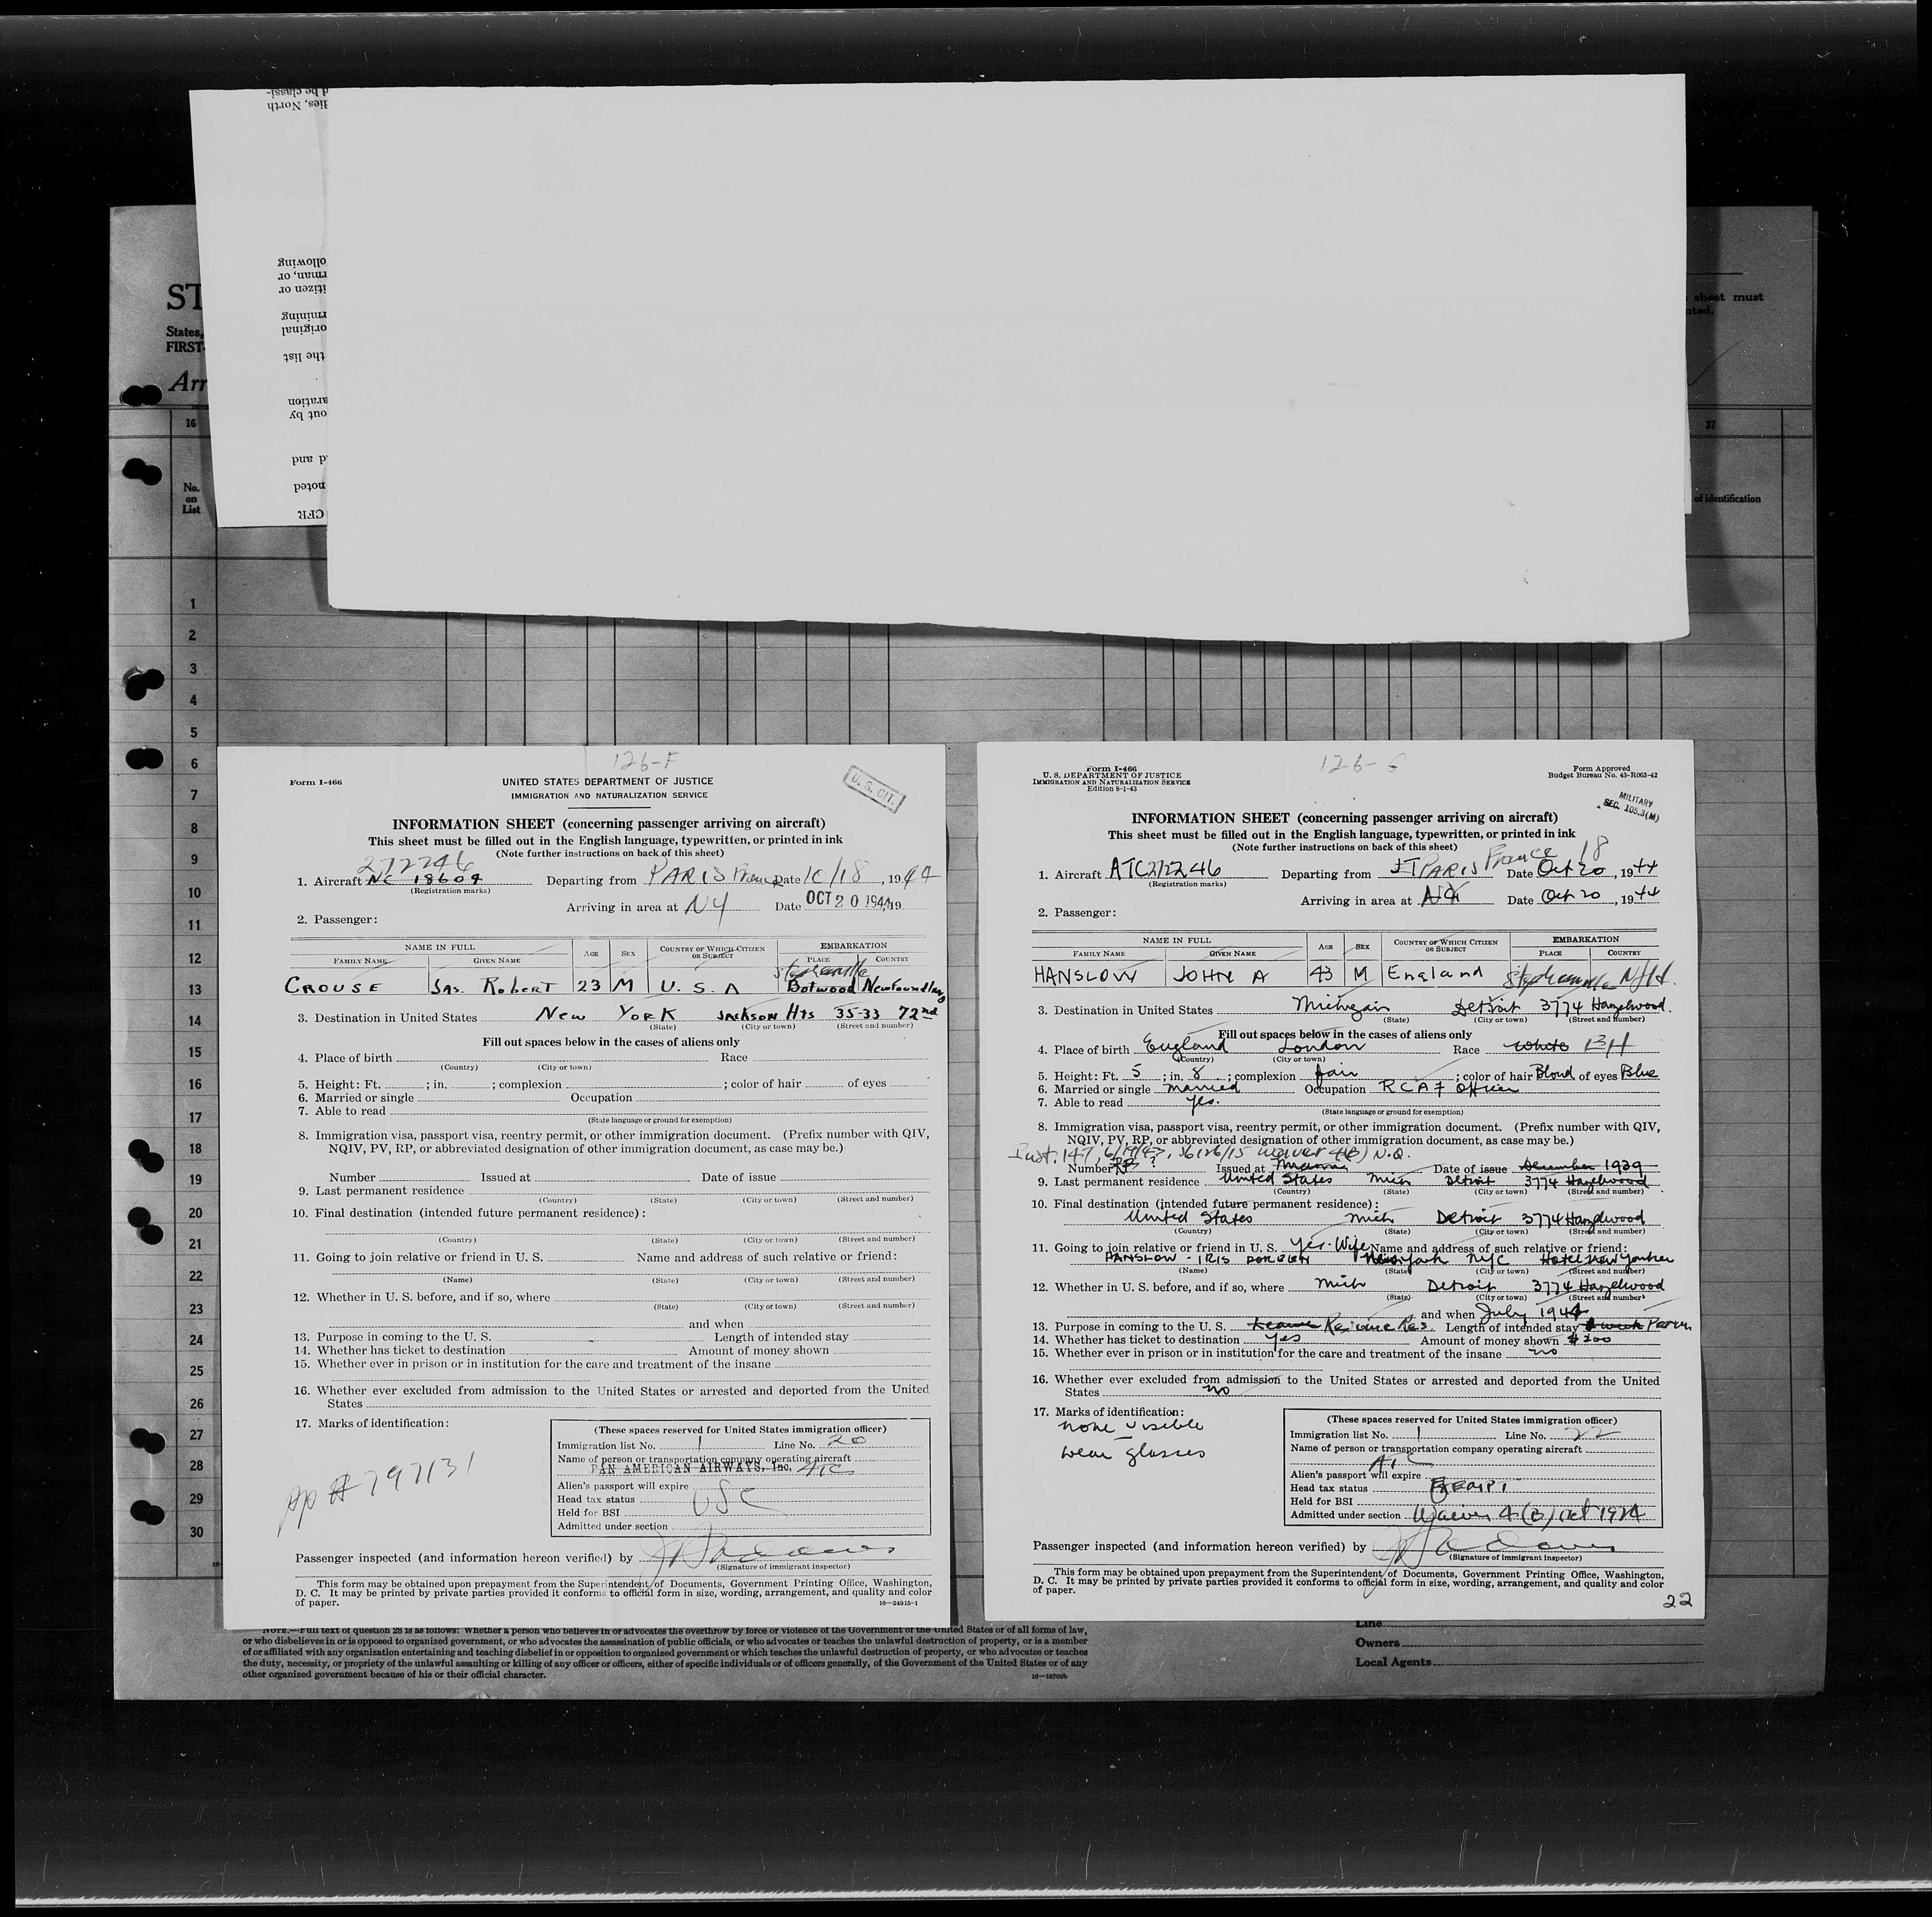 ST
States,
FIRST-
Arr
16
No.
on
List
sheet must
nted.
37
of identification
d be classi-
lies, North
ollowing
rman, or
itizen or
rmining
original
the list
aration
out by
d and
noted
CFR
1
2
3
4
5
6
7
8
9
10
11
12
13
14
15
16
17
18
19
20
21
22
23
24
25
26
27
28
29
30
126-F
Form I-466
UNITED STATES DEPARTMENT OF JUSTICE
IMMIGRATION AND NATURALIZATION SERVICE
U. S. CIT.
INFORMATION SHEET (concerning passenger arriving on aircraft)
This sheet must be filled out in the English language, typewritten, or printed in ink
(Note further instructions on back of this sheet)
272246
1. Aircraft NC 18609 Departing from PARIS France Date 10/18, 1944
(Registration marks)
Arriving in area at NY Date OCT 20 1944, 19
2. Passenger:
NAME IN FULL AGE SEX COUNTRY OF WHICH CITIZEN OR SUBJECT EMBARKATION
FAMILY NAME GIVEN NAME PLACE COUNTRY
Stephenville
CROUSE JAS. ROBERT 23 M U. S. A Botwood Newfoundland
3. Destination in United States New YORK JACKSON Hts 35-33 72nd
(State) (City or town) (Street and number)
Fill out spaces below in the cases of aliens only
4. Place of birth Race
(Country) (City or town)
5. Height: Ft. ; in. ; complexion ; color of hair of eyes
6. Married or single Occupation
7. Able to read
(State language or ground for exemption)
8. Immigration visa, passport visa, reentry permit, or other immigration document. (Prefix number with QIV,
NQIV, PV, RP, or abbreviated designation of other immigration document, as case may be.)
Number Issued at Date of issue
9. Last permanent residence
(Country) (State) (City or town) (Street and number)
10. Final destination (intended future permanent residence):
(Country) (State) (City or town) (Street and number)
11. Going to join relative or friend in U. S. Name and address of such relative or friend:
(Name) (State) (City or town) (Street and number)
12. Whether in U. S. before, and if so, where
(State) (City or town) (Street and number)
and when
13. Purpose in coming to the U. S. Length of intended stay
14. Whether has ticket to destination Amount of money shown
15. Whether ever in prison or in institution for the care and treatment of the insane
16. Whether ever excluded from admission to the United States or arrested and deported from the United
States
17. Marks of identification:
PP # 797131
(These spaces reserved for United States immigration officer)
Immigration list No. 1 Line No. 20
Name of person or transportation company operating aircraft
PAN AMERICAN AIRWAYS, Inc. ATC
Alien's passport will expire
Head tax status USC
Held for BSI
Admitted under section
Passenger inspected (and information hereon verified) by
(Signature of immigrant inspector)
This form may be obtained upon prepayment from the Superintendent of Documents, Government Printing Office, Washington,
D. C. It may be printed by private parties provided it conforms to official form in size, wording, arrangement, and quality and color
of paper. 16—24915-1
126-G
Form I-466
U. S. DEPARTMENT OF JUSTICE
IMMIGRATION AND NATURALIZATION SERVICE
Edition 8-1-43
Form Approved
Budget Bureau No. 43-R063-42
MILITARY
SEC. 105.3(M)
INFORMATION SHEET (concerning passenger arriving on aircraft)
This sheet must be filled out in the English language, typewritten, or printed in ink
(Note further instructions on back of this sheet)
18
1. Aircraft ATC272246 Departing from PARIS France Date Oct 20, 1944
(Registration marks)
Arriving in area at NY Date Oct 20, 1944
2. Passenger:
NAME IN FULL AGE SEX COUNTRY OF WHICH CITIZEN OR SUBJECT EMBARKATION
FAMILY NAME GIVEN NAME PLACE COUNTRY
HANSLOW JOHN A 43 M England Stephenville Nfld.
3. Destination in United States Michigan Detroit 3774 Hazelwood.
(State) (City or town) (Street and number)
Fill out spaces below in the cases of aliens only
4. Place of birth England London Race White
(Country) (City or town)
5. Height: Ft. 5; in. 8; complexion fair; color of hair Blond of eyes Blue
6. Married or single married Occupation RCAF Officer
7. Able to read yes.
(State language or ground for exemption)
8. Immigration visa, passport visa, reentry permit, or other immigration document. (Prefix number with QIV,
NQIV, PV, RP, or abbreviated designation of other immigration document, as case may be.)
Inst. 147, 6/19/43, 56126/15 waiver 4(B) N.Q.
Number Issued at Date of issue December 1939
9. Last permanent residence United States Mich Detroit 3774 Hazelwood
(Country) (State) (City or town) (Street and number)
10. Final destination (intended future permanent residence):
United States Mich Detroit 3774 Hazelwood
(Country) (State) (City or town) (Street and number)
11. Going to join relative or friend in U. S. Yes - Wife Name and address of such relative or friend:
HANSLOW - IRIS DOREEN New York NYC Hotel New Yorker
(Name) (State) (City or town) (Street and number)
12. Whether in U. S. before, and if so, where Mich Detroit 3774 Hazelwood
(State) (City or town) (Street and number)
and when July 1944
13. Purpose in coming to the U. S. Leave Resume Res. Length of intended stay week Perm
14. Whether has ticket to destination yes Amount of money shown $200
15. Whether ever in prison or in institution for the care and treatment of the insane no
16. Whether ever excluded from admission to the United States or arrested and deported from the United
States no
17. Marks of identification:
none visible
wear glasses
(These spaces reserved for United States immigration officer)
Immigration list No. 1 Line No. 22
Name of person or transportation company operating aircraft
ATC
Alien's passport will expire
Head tax status EXEMPT
Held for BSI
Admitted under section Waiver 4(B) Act 1924
Passenger inspected (and information hereon verified) by
(Signature of immigrant inspector)
This form may be obtained upon prepayment from the Superintendent of Documents, Government Printing Office, Washington,
D. C. It may be printed by private parties provided it conforms to official form in size, wording, arrangement, and quality and color
of paper.
22
NOTE.—Full text of question 28 is as follows: Whether a person who believes in or advocates the overthrow by force or violence of the Government of the United States or of all forms of law,
or who disbelieves in or is opposed to organized government, or who advocates the assassination of public officials, or who advocates or teaches the unlawful destruction of property, or is a member
of or affiliated with any organization entertaining and teaching disbelief in or opposition to organized government or which teaches the unlawful destruction of property, or who advocates or teaches
the duty, necessity, or propriety of the unlawful assaulting or killing of any officer or officers, either of specific individuals or of officers generally, of the Government of the United States or of any
other organized government because of his or their official character. 16—18709b
Line
Owners
Local Agents